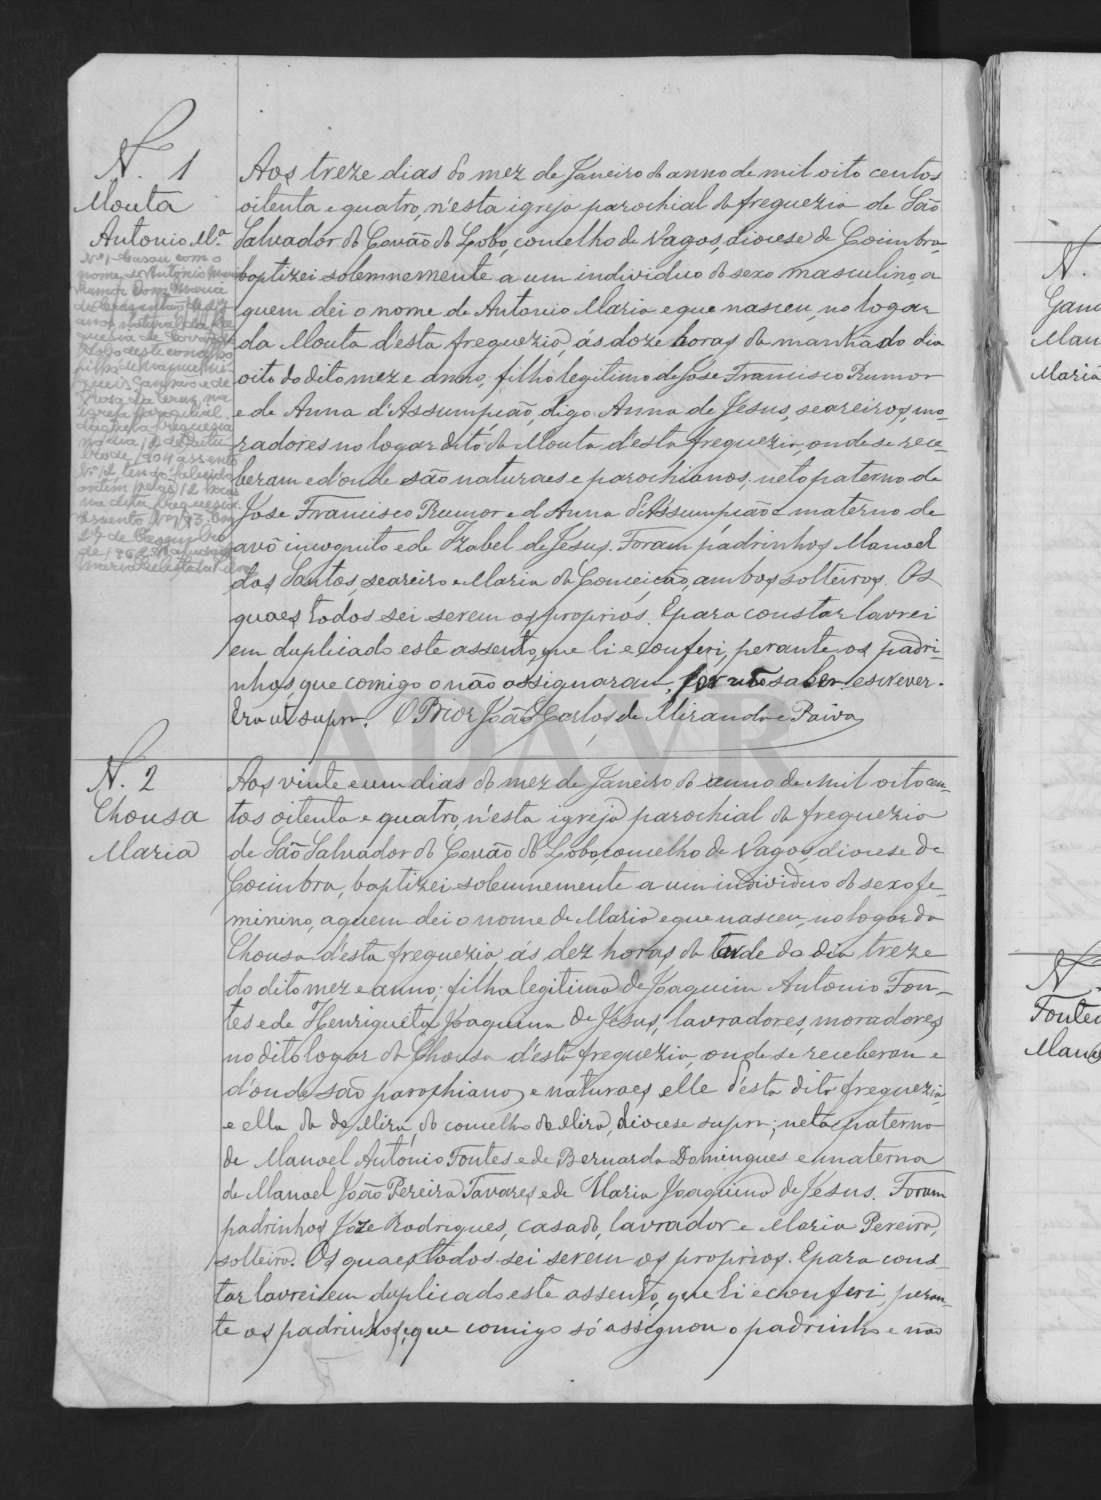 N. 1
Mouta
Antonio M.ª
Nº 1 - Casou com o
nome de Antonio Maria
Rumor Com Maria
de
anos natural da fre
guesia de Covão do
Lobo deste concelho
filha de
e de
Rosaria
igreja paroquial
daquela freguesia
no dia 12 de Outu
bro de 1904 assento
Nº 12 tendo falecido
ontem pelas 12 horas
na dita freguesia
Assento Nº 173. Em
27 de Dezembro
de 1962
Aos treze dias do mez de Janeiro do anno de mil oito centos
oitenta e quatro, n'esta igreja parochial da freguezia de São
Salvador do Covão do Lobo, comelho de Vagos, diocese de Coimbra
baptizei solemnemente a um individuo do sexo masculino, a
quem dei o nome de Antonio Maria e que nasceu, no logar
da Mouta d'esta freguezia, ás doze horas da manhã do dia
oito do dito mez e anno, filho legitimo de Jose Francisco Rumor
e de Anna d'Assumpção, digo Anna de Jesus, seareiros, mo-
radores no logar dito da Mouta d'esta freguezia, onde se rece-
beram e d'onde são naturaes e parochianos; neto paterno de
Jose Francisco Rumor e d'Anna d'Assumpção e materno de
avô incognito e de Izabel de Jesus. Foram padrinhos Manoel
dos Santos, seareiro e Maria da Conceição, ambos solteiros. Os
quaes todos sei serem os proprios. E para constar lavrei
em duplicado este assento, que li e conferi, perante os padri-
nhos, que comigo o não assignaram, por não saber escrever.
Era ut supra. O Prior João Carlos de Miranda e Paiva
N. 2
Chousa
Maria
Aos vinte e um dias do mez de Janeiro do anno de mil oito cen-
tos oitenta e quatro, n'esta igreja parochial da freguezia
de São Salvador do Covão do Lobo, comelho de Vagos, diocese de
Coimbra, baptizei solemnemente a um individuo do sexo fe-
minino, a quem dei o nome de Maria e que nasceu, no logar da
Chousa d'esta freguezia ás dez horas da tarde do dia treze
do dito mez e anno; filha legitima de Joaquim Antonio Fon-
tes e de Henriqueta Joaquina de Jesus, lavradores, moradores
no dito logar da Chousa d'esta freguezia, onde se receberam e
d'onde são parochianos e naturaes, elle d'esta dita freguezia,
e ella da de Mira, do comelho de Mira, diocese supra; neta paterna
de Manoel Antonio Fontes e de Bernarda Domingues e materna
de Manoel João Pereira Tavares e de Maria Joaquina de Jesus. Foram
padrinhos Józe Rodrigues, casado, lavrador e Maria Pereira,
solteira. Os quaes todos sei serem os proprios. E para cons-
tar lavrei em duplicado este assento, que li e conferi, peran-
te os padrinhos, que comigo só assignou o padrinho e não
ADAVR
N.
Man
Maria
N.
Fontes